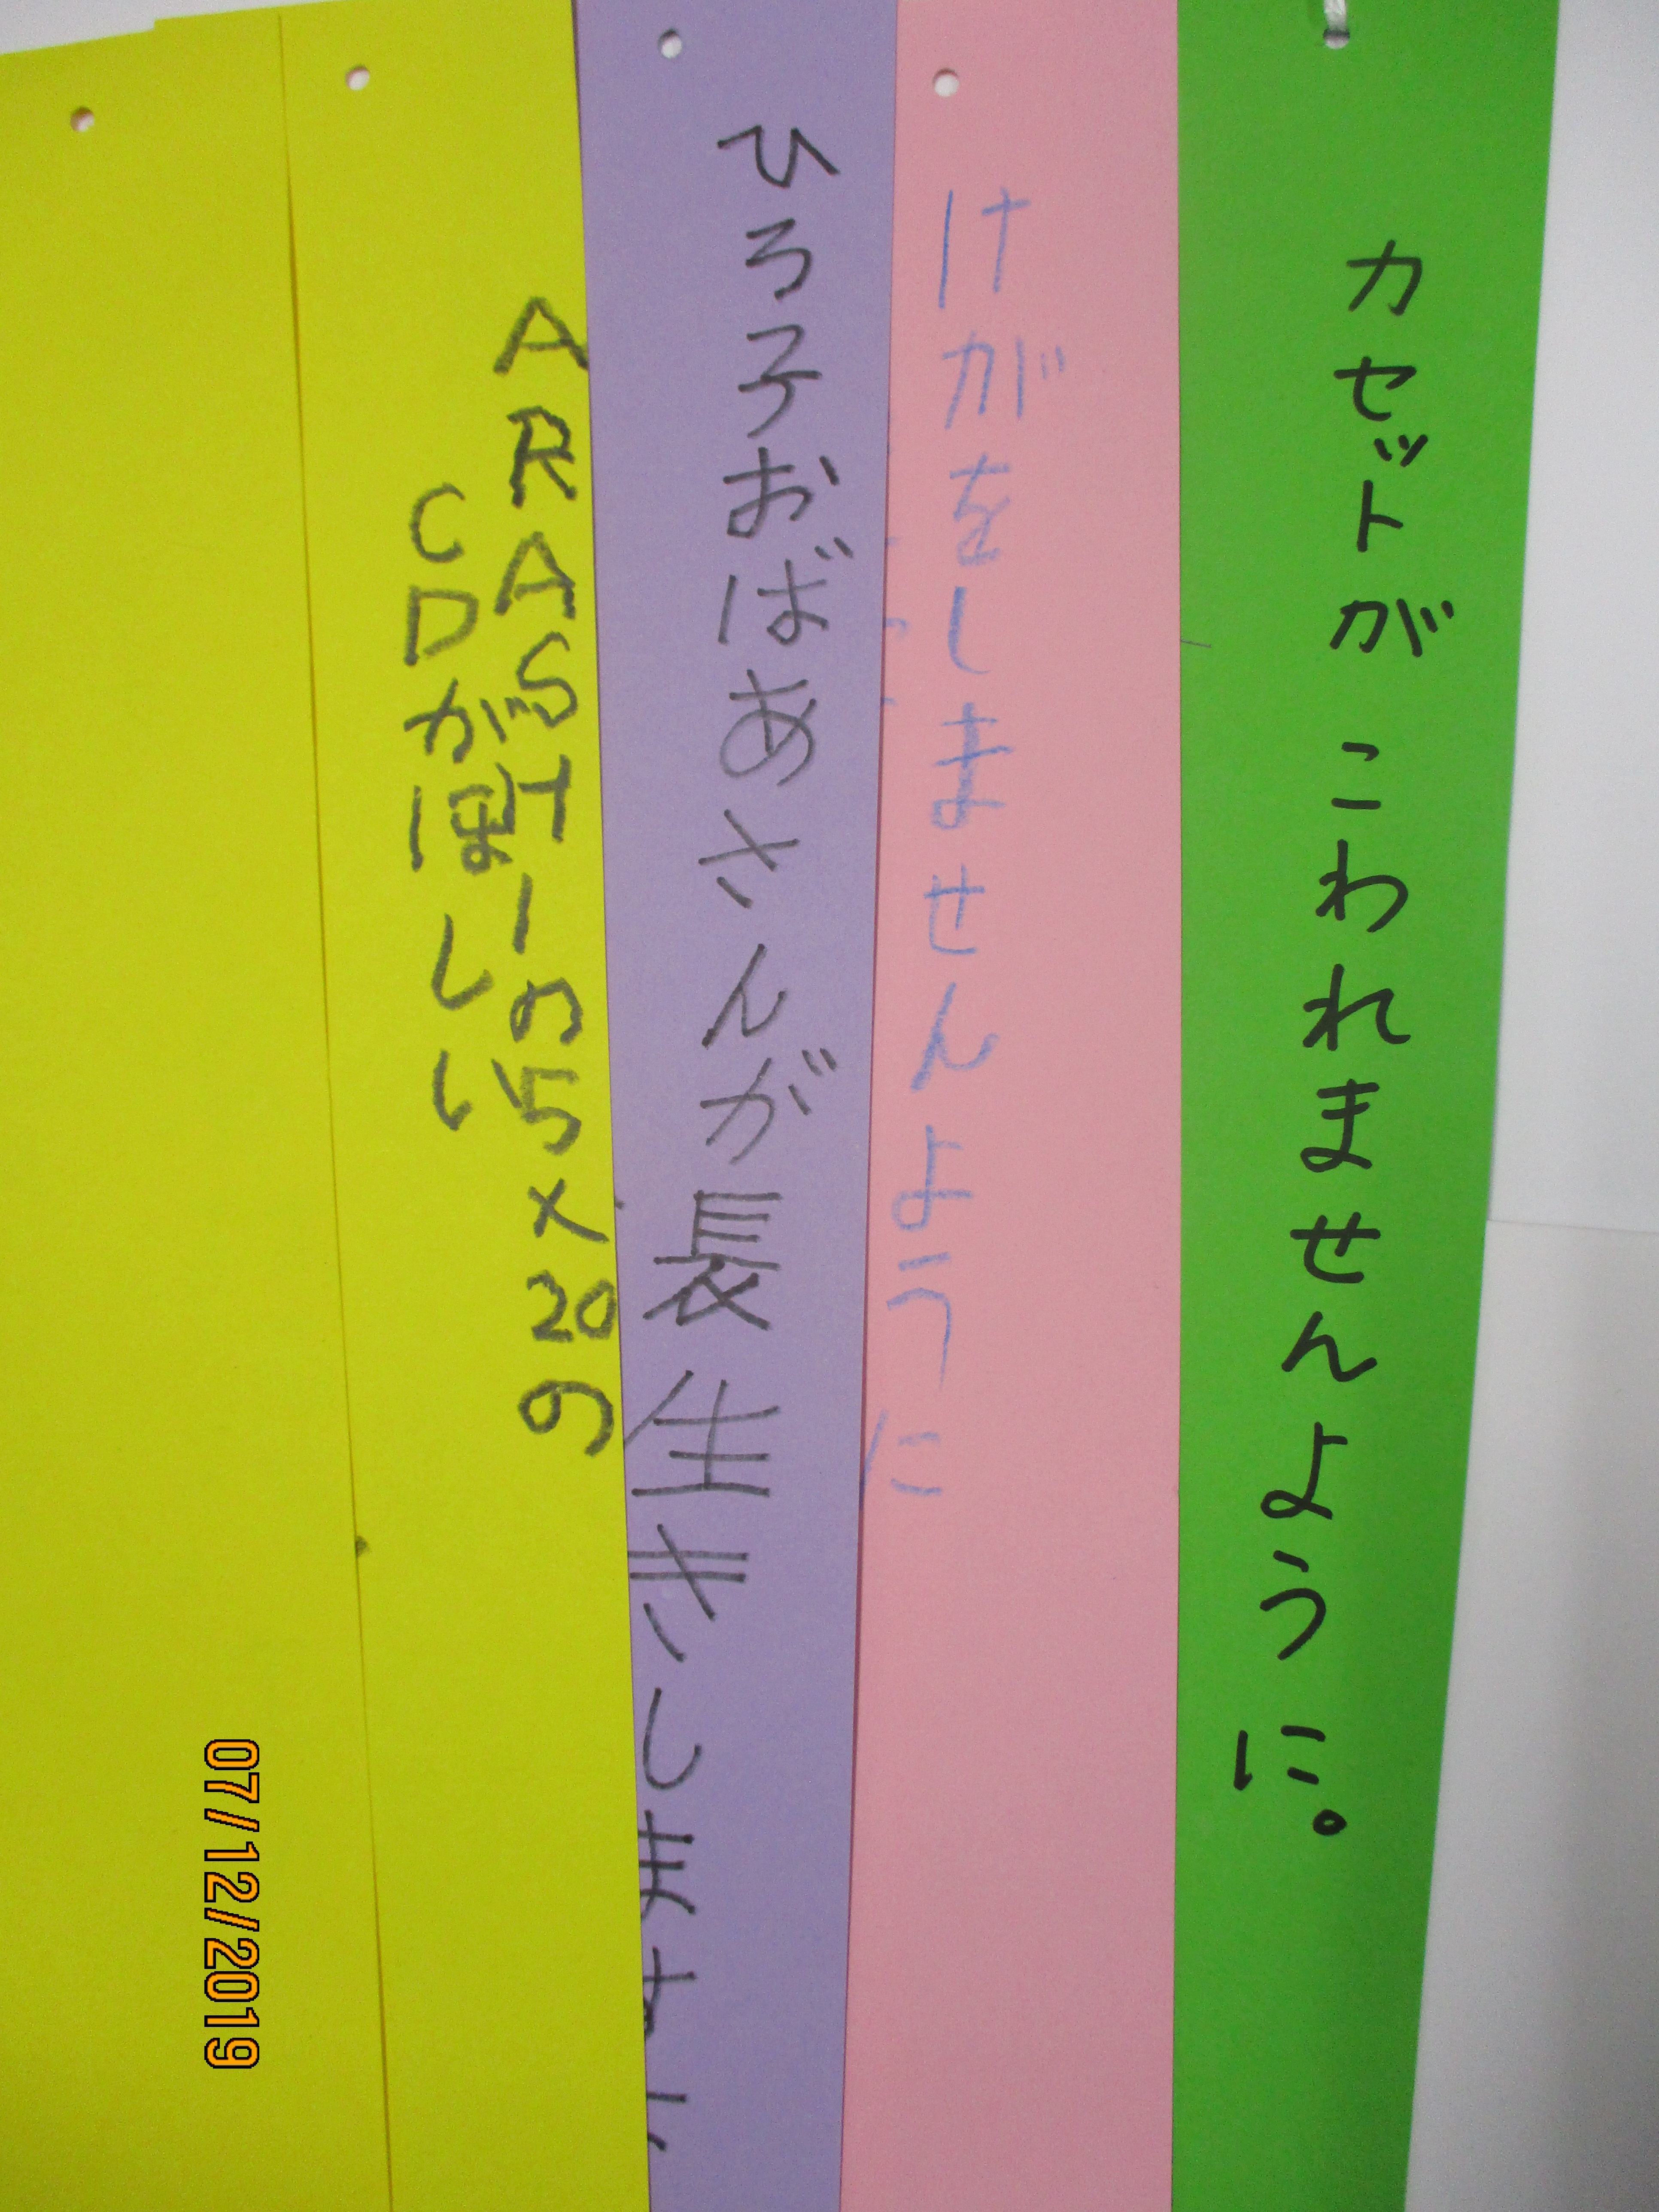 カセットがこわれませんように。
けがをしませんように
ひろ子おばあさんが長生きします
ARASHIの5×20の
CDがほしい
07/12/2019